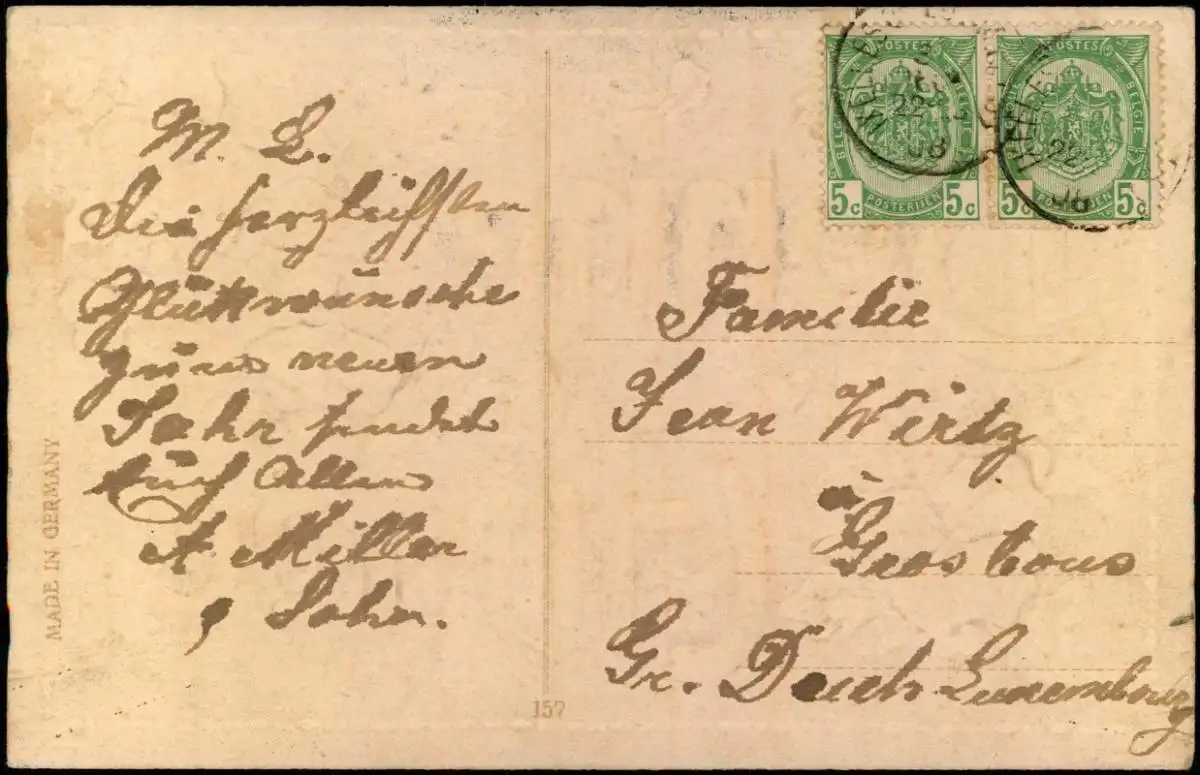 M. L.
Die herzlichsten
Glückwünsche
zum neuen
Jahr sendet
Euch Allen
A. Miller
Sohn.
MADE IN GERMANY
157
POSTES
BELGIE
5c 5c
POSTERIJEN
22
08
POSTES
BELGIE
5c 5c
POSTERIJEN
22
08
Familie
Jean Wirtz
à
Grosbous
Gr. Duch Luxembourg